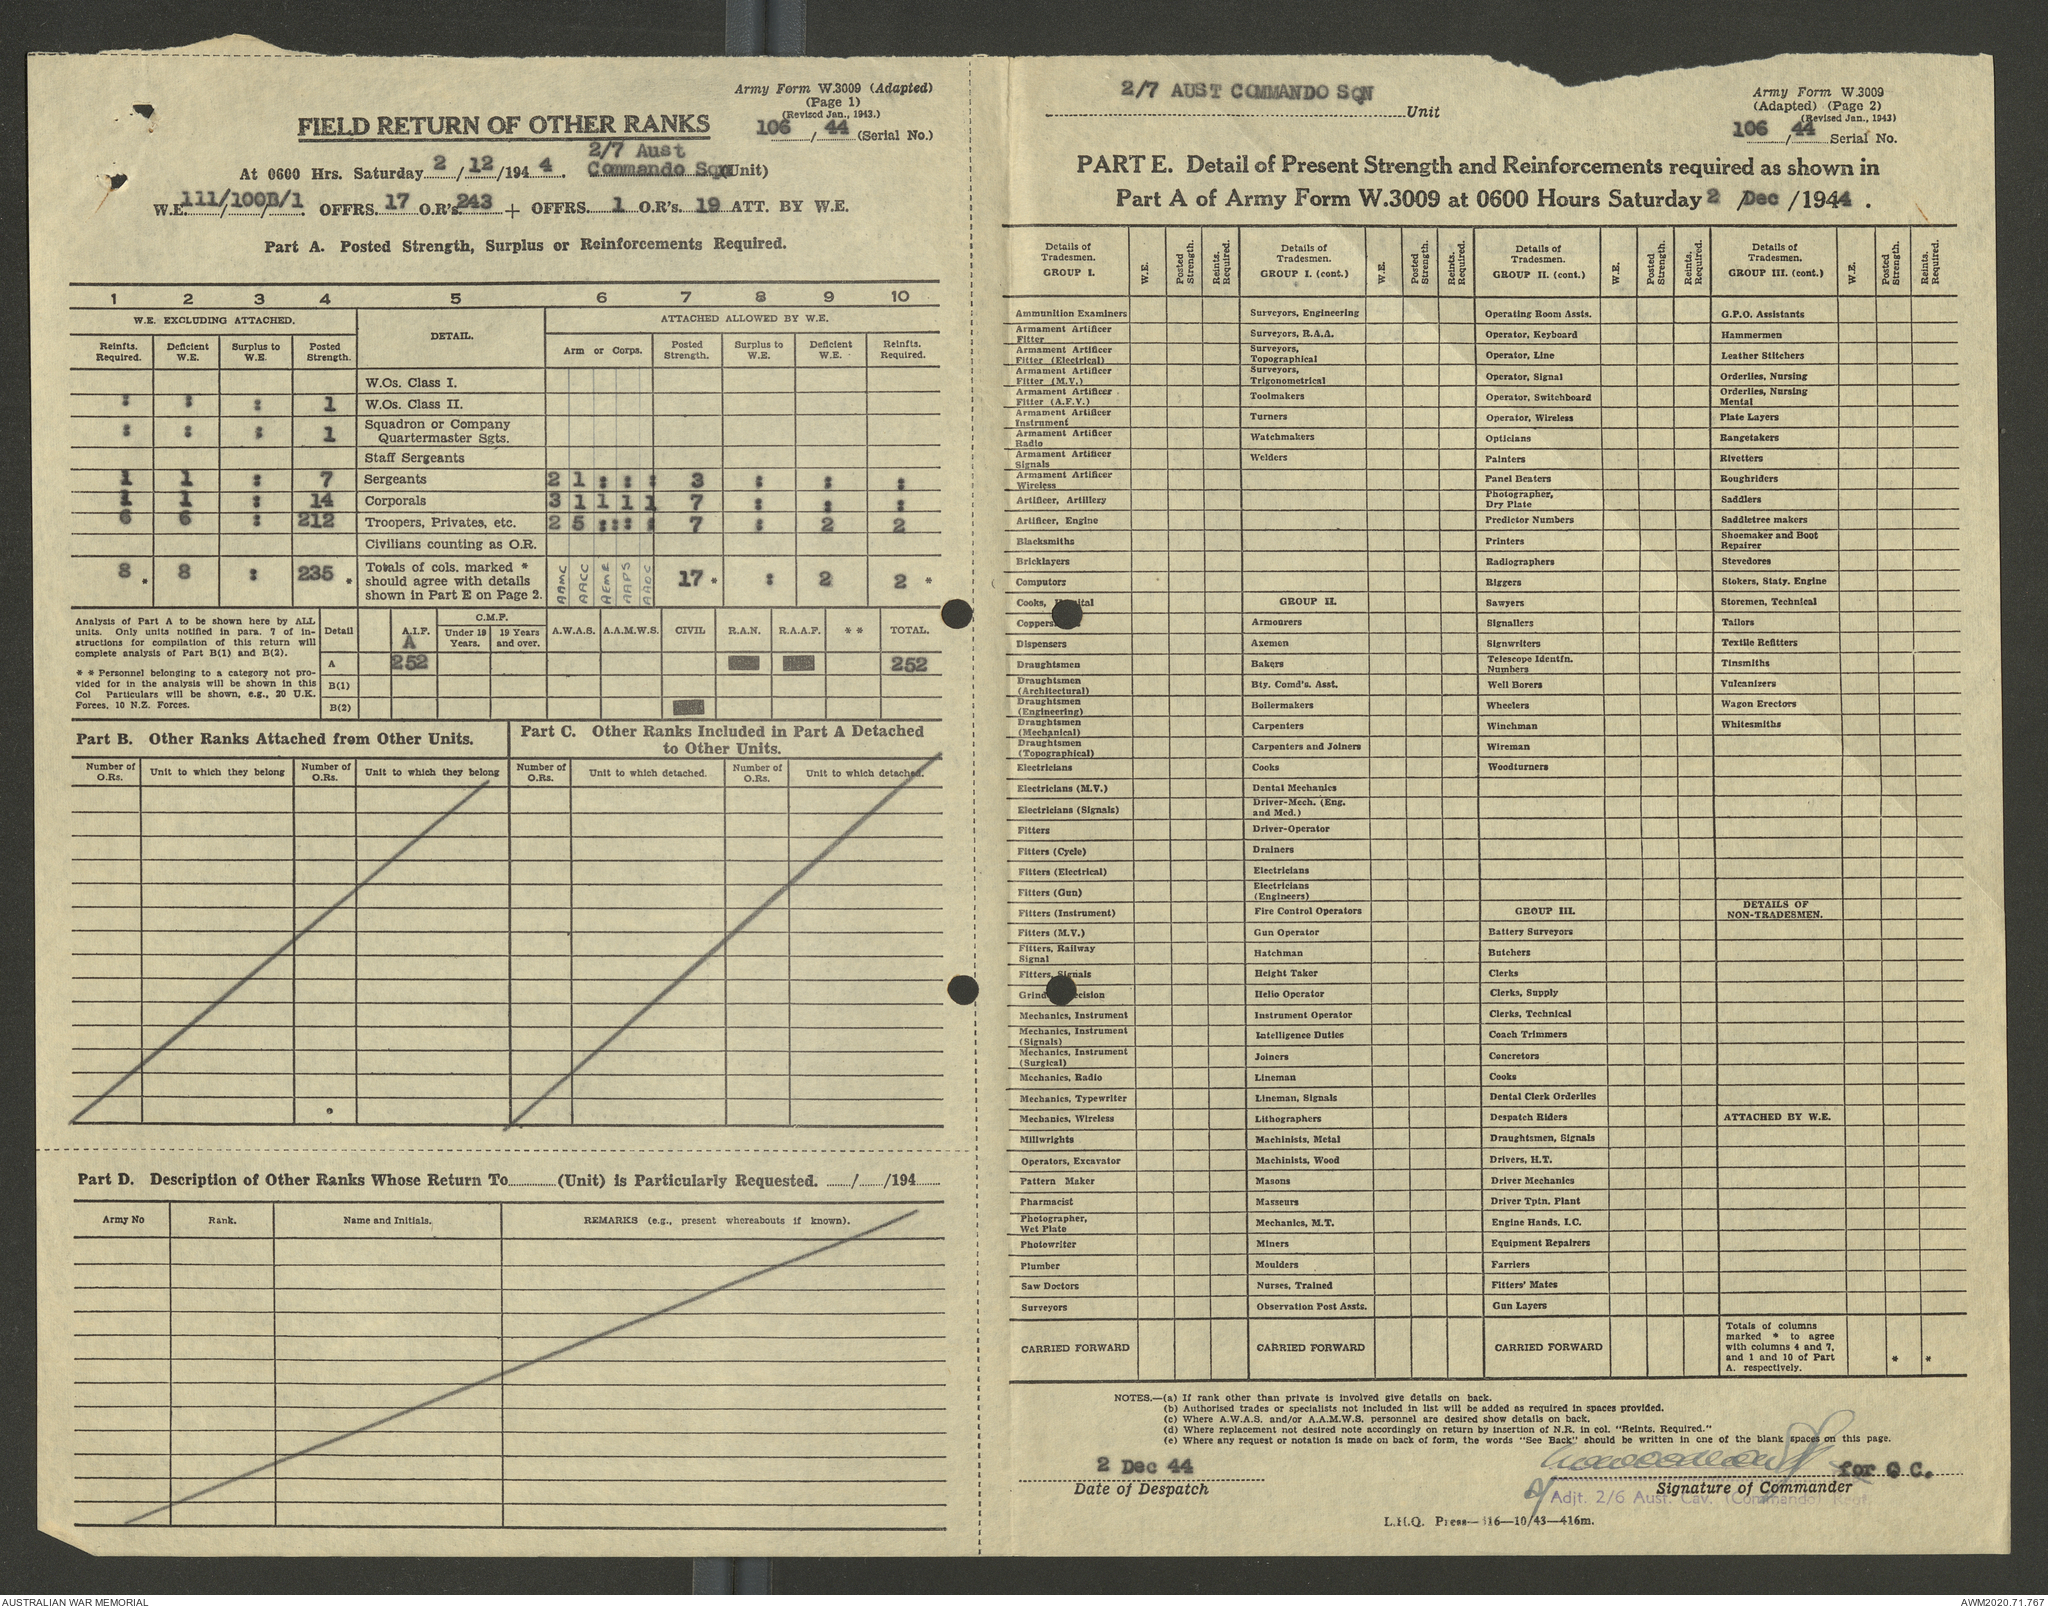 Army Form W.3009 (Adapted)
(Page 1)
(Revised Jan., 1943.)
FIELD RETURN OF OTHER RANKS
106/44 (Serial No.)
At 0600 Hrs. Saturday 2/12/1944. 2/7 Aust
Commando Sqn (Unit)
W.E. 111/100B/1 OFFRS. 17 O.R's. 243 + OFFRS. 1 O.R's. 19 ATT. BY W.E.
Part A. Posted Strength, Surplus or Reinforcements Required.
1 2 3 4 5 6 7 8 9 10
W.E. EXCLUDING ATTACHED. DETAIL. ATTACHED ALLOWED BY W.E.
Reinfts. Required. Deficient W.E. Surplus to W.E. Posted Strength. Arm or Corps. Posted Strength. Surplus to W.E. Deficient W.E. Reinfts. Required.
W.Os. Class I.
: : : 1 W.Os. Class II.
: : : 1 Squadron or Company Quartermaster Sgts.
Staff Sergeants
1 1 : 7 Sergeants 2 1 : : : 3 : : :
1 1 : 14 Corporals 3 1 1 1 1 7 : : :
6 6 : 212 Troopers, Privates, etc. 2 5 : : : 7 : 2 2
Civilians counting as O.R.
8 * 8 : 235 * Totals of cols. marked * should agree with details shown in Part E on Page 2. AAMC AACC AEME AAPS AAOC 17 * : 2 2 *
Analysis of Part A to be shown here by ALL
units. Only units notified in para. 7 of in-
structions for compilation of this return will
complete analysis of Part B(1) and B(2).
* * Personnel belonging to a category not pro-
vided for in the analysis will be shown in this
Col Particulars will be shown, e.g., 20 U.K.
Forces, 10 N.Z. Forces.
Detail A.I.F. C.M.F. Under 19 Years. 19 Years and over. A.W.A.S. A.A.M.W.S. CIVIL R.A.N. R.A.A.F. * * TOTAL.
A
A 252 252
B(1)
B(2)
Part B. Other Ranks Attached from Other Units.
Part C. Other Ranks Included in Part A Detached
to Other Units.
Number of O.Rs. Unit to which they belong Number of O.Rs. Unit to which they belong Number of O.Rs. Unit to which detached. Number of O.Rs. Unit to which detached.
Part D. Description of Other Ranks Whose Return To (Unit) is Particularly Requested. / /194
Army No Rank. Name and Initials. REMARKS (e.g., present whereabouts if known).
2/7 AUST COMMANDO SQN Unit
Army Form W.3009
(Adapted) (Page 2)
(Revised Jan., 1943)
106/44 Serial No.
PART E. Detail of Present Strength and Reinforcements required as shown in
Part A of Army Form W.3009 at 0600 Hours Saturday 2 /Dec /1944.
Details of Tradesmen. GROUP I. W.E. Posted Strength. Reints. Required. Details of Tradesmen. GROUP I. (cont.) W.E. Posted Strength. Reints. Required. Details of Tradesmen. GROUP II. (cont.) W.E. Posted Strength. Reints. Required. Details of Tradesmen. GROUP III. (cont.) W.E. Posted Strength. Reints. Required.
Ammunition Examiners Surveyors, Engineering Operating Room Assts. G.P.O. Assistants
Armament Artificer Fitter Surveyors, R.A.A. Operator, Keyboard Hammermen
Armament Artificer Fitter (Electrical) Surveyors, Topographical Operator, Line Leather Stitchers
Armament Artificer Fitter (M.V.) Surveyors, Trigonometrical Operator, Signal Orderlies, Nursing
Armament Artificer Fitter (A.F.V.) Toolmakers Operator, Switchboard Orderlies, Nursing Mental
Armament Artificer Instrument Turners Operator, Wireless Plate Layers
Armament Artificer Radio Watchmakers Opticians Rangetakers
Armament Artificer Signals Welders Painters Rivetters
Armament Artificer Wireless Panel Beaters Roughriders
Artificer, Artillery Photographer, Dry Plate Saddlers
Artificer, Engine Predictor Numbers Saddletree makers
Blacksmiths Printers Shoemaker and Boot Repairer
Bricklayers Radiographers Stevedores
Computors Riggers Stokers, Staty. Engine
Cooks, GROUP II. Sawyers Storemen, Technical
Armourers Signallers Tailors
Dispensers Axemen Signwriters Textile Refitters
Draughtsmen Bakers Telescope Identfn. Numbers Tinsmiths
Draughtsmen (Architectural) Bty. Comd's. Asst. Well Borers Vulcanizers
Draughtsmen (Engineering) Boilermakers Wheelers Wagon Erectors
Draughtsmen (Mechanical) Carpenters Winchman Whitesmiths
Draughtsmen (Topographical) Carpenters and Joiners Wireman
Electricians Cooks Woodturners
Electricians (M.V.) Dental Mechanics
Electricians (Signals) Driver-Mech. (Eng. and Med.)
Fitters Driver-Operator
Fitters (Cycle) Drainers
Fitters (Electrical) Electricians
Fitters (Gun) Electricians (Engineers)
Fitters (Instrument) Fire Control Operators GROUP III. DETAILS OF NON-TRADESMEN.
Fitters (M.V.) Gun Operator Battery Surveyors
Fitters, Railway Signal Hatchman Butchers
Fitters, Signals Height Taker Clerks
Helio Operator Clerks, Supply
Mechanics, Instrument Instrument Operator Clerks, Technical
Mechanics, Instrument (Signals) Intelligence Duties Coach Trimmers
Mechanics, Instrument (Surgical) Joiners Concretors
Mechanics, Radio Lineman Cooks
Mechanics, Typewriter Lineman, Signals Dental Clerk Orderlies
Mechanics, Wireless Lithographers Despatch Riders ATTACHED BY W.E.
Millwrights Machinists, Metal Draughtsmen, Signals
Operators, Excavator Machinists, Wood Drivers, H.T.
Pattern Maker Masons Driver Mechanics
Pharmacist Masseurs Driver Tptn. Plant
Photographer, Wet Plate Mechanics, M.T. Engine Hands, I.C.
Photowriter Miners Equipment Repairers
Plumber Moulders Farriers
Saw Doctors Nurses, Trained Fitters' Mates
Surveyors Observation Post Assts. Gun Layers
CARRIED FORWARD CARRIED FORWARD CARRIED FORWARD Totals of columns marked * to agree with columns 4 and 7, and 1 and 10 of Part A. respectively. * *
NOTES.—(a) If rank other than private is involved give details on back.
(b) Authorised trades or specialists not included in list will be added as required in spaces provided.
(c) Where A.W.A.S. and/or A.A.M.W.S. personnel are desired show details on back.
(d) Where replacement not desired note accordingly on return by insertion of N.R. in col. "Reints. Required."
(e) Where any request or notation is made on back of form, the words "See Back" should be written in one of the blank spaces on this page.
2 Dec 44 for O C.
Date of Despatch Signature of Commander
Adjt. 2/6 Aust. Cav. (Commando) Regt.
L.H.Q. Press—116—10/43—416m.
AUSTRALIAN WAR MEMORIAL AWM2020.71.767